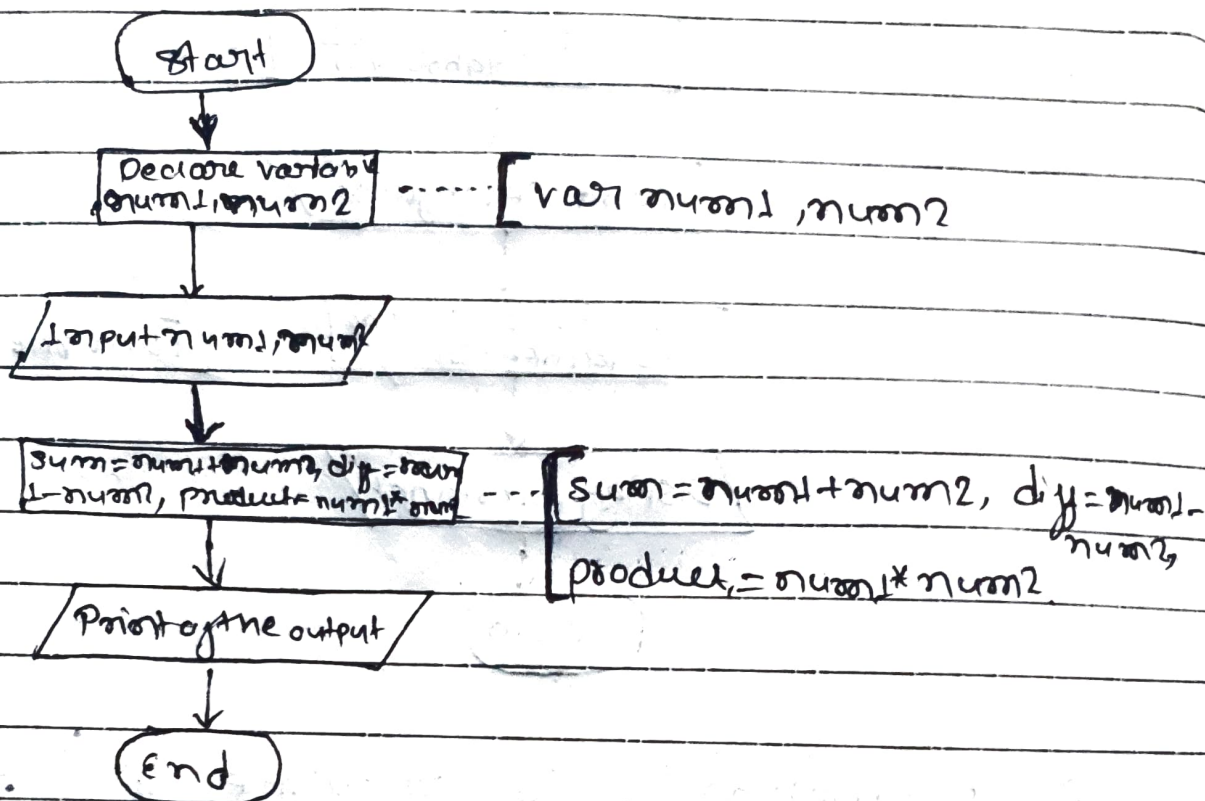 Start
Declare variable
num1, num2
var num1, num2
Input num1, num2
sum = num1 + num2, diff = num
1 - num2, product = num1 * num
sum = num1 + num2, diff = num1 -
num2,
product, = num1 * num2
Print of the output
End